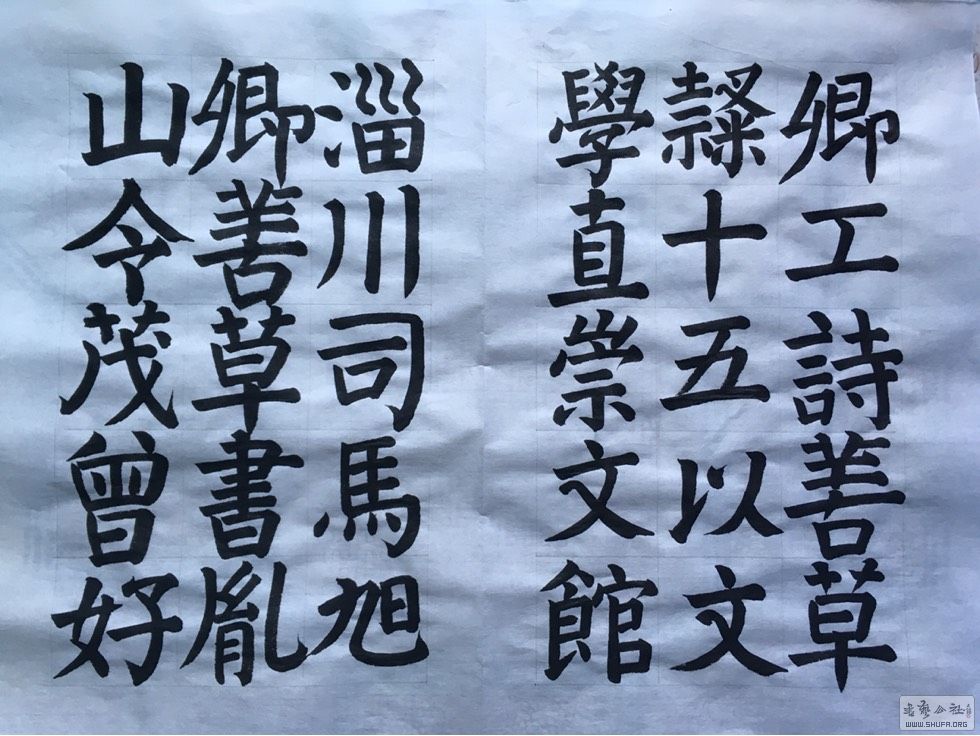 卿工詩善草
隸十五以文
學直崇文館
淄川司馬旭
卿善草書胤
山令茂曾好
WWW.SHUFA.ORG